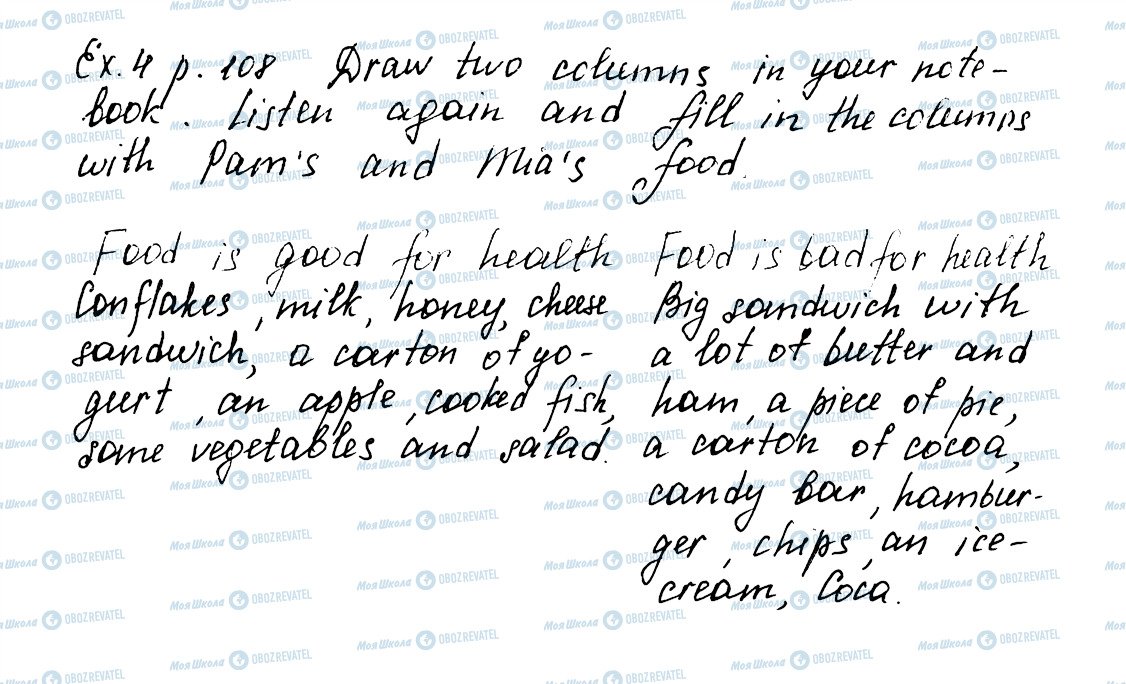 Ex. 4 p. 108 Draw two columns in your note-
book. Listen again and fill in the columns
with Pam's and Mia's food.
Food is good for health
Conflakes, milk, honey, cheese
sandwich, a carton of yo-
gurt, an apple, cooked fish,
some vegetables and salad.
Food is bad for health
Big sandwich with
a lot of butter and
ham, a piece of pie,
a carton of cocoa,
candy bar, hambur-
ger, chips, an ice-
cream, Coca.